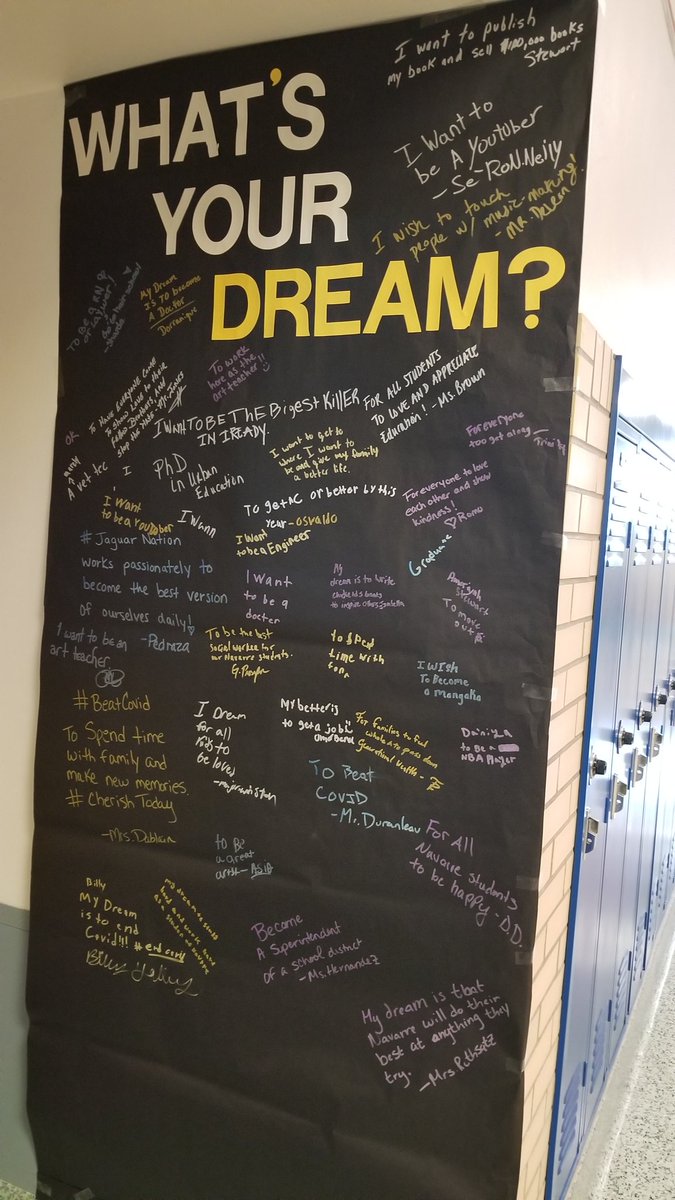 I want to publish
my book and sell $100,000 books
Stewort
WHAT'S
YOUR
DREAM?
I Want to
be A Youtuber
- Se'RoN.Neily
I wish to touch
people w/ music-making!
- Mr. 
To be a RN
or Lawyer!
My Dream
IS TO become
A Doctor
To work
here as the
art teacher!!
To Have Everyone Come
To show Love to their
Fellow Brothers, and
Stop the Hate! -Mr. Jones
I WANT TO BE THE BIgest KILLER
IN IREADY.
FOR ALL STUDENTS
TO LOVE AND APPRECIATE
Education! - Ms. Brown
OK
A vet tec
I
PhD
in Urban
Education
I want to get to
where I want to
be and give my family
a better life.
For everyone
too get along
To get AC or better by this
year - osvaldo
For everyone to love
each other and show
kindness!
♡ Romo
I want
to be a YouTuber
I Wann
I Want
to be a Engineer
Graduate
# Jaguar Nation
works passionately to
become the best version
of ourselves daily!
- Pedraza
I Want
to be a
docter
My
dream is to write
children's books
to inspire others
Stework
To move
out
I want to be an
art teacher
To be the best
social worker for
our Navarre students.
to spend
time with
fam
I wish
To Become
a mangaka
#BeatCovid
To Spend time
with family and
make new memories.
# Cherish Today
-Mrs. Dablain
I Dream
for all
Kids to
be loved
My better is
to get a job
For families to feel
whole & to pass down
generational wealth -
to be a
NBA Player
To Beat
COVID
-Mr. Duranleau
For All
Navarre students
to be happy - D.D.
to Be
a great
artist - ASIA
Billy
My Dream
is to end
Covid!!! #end covid
Billy
Become
A Superintendent
of a school district
- Ms. Hernandez
My dream is that
Navarre will do their
best at anything they
try.
- Mrs. Rothsatz